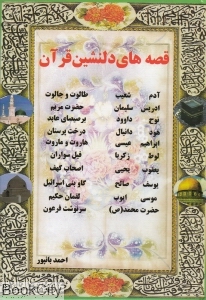 قصه های دلنشین قرآن
آدم شعیب طالوت و جالوت
ادریس سلیمان حضرت مریم
نوح داوود برصیصای عابد
هود دانیال درخت پرستان
ابراهیم عیسی هاروت و ماروت
لوط زکریا فیل سواران
یعقوب یحیی اصحاب کهف
یوسف صالح گاو بنی اسرائیل
موسی ایوب لقمان حکیم
حضرت محمد(ص) سرنوشت فرعون
احمد بانپور
BookCity